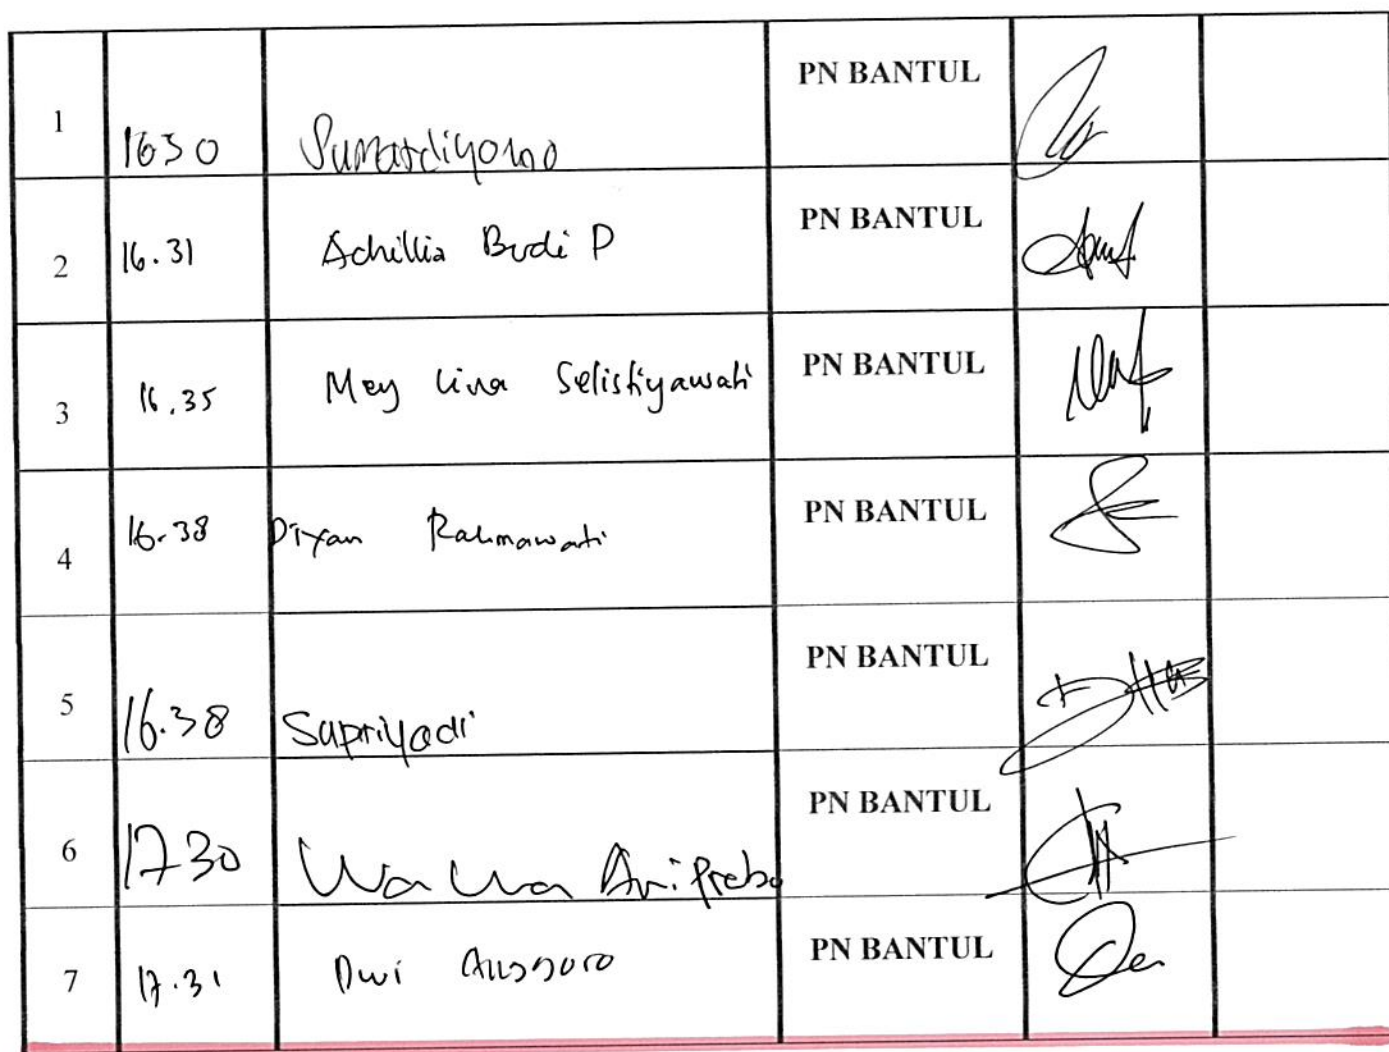 1 1630 Sumardiyono PN BANTUL
2 16.31 Achillia Budi P PN BANTUL
3 16.35 Mey Lina Selistiyawati PN BANTUL
4 16.38 Diyan Rahmawati PN BANTUL
5 16.38 Supriyadi PN BANTUL
6 1730 PN BANTUL
7 17.31 Dwi PN BANTUL